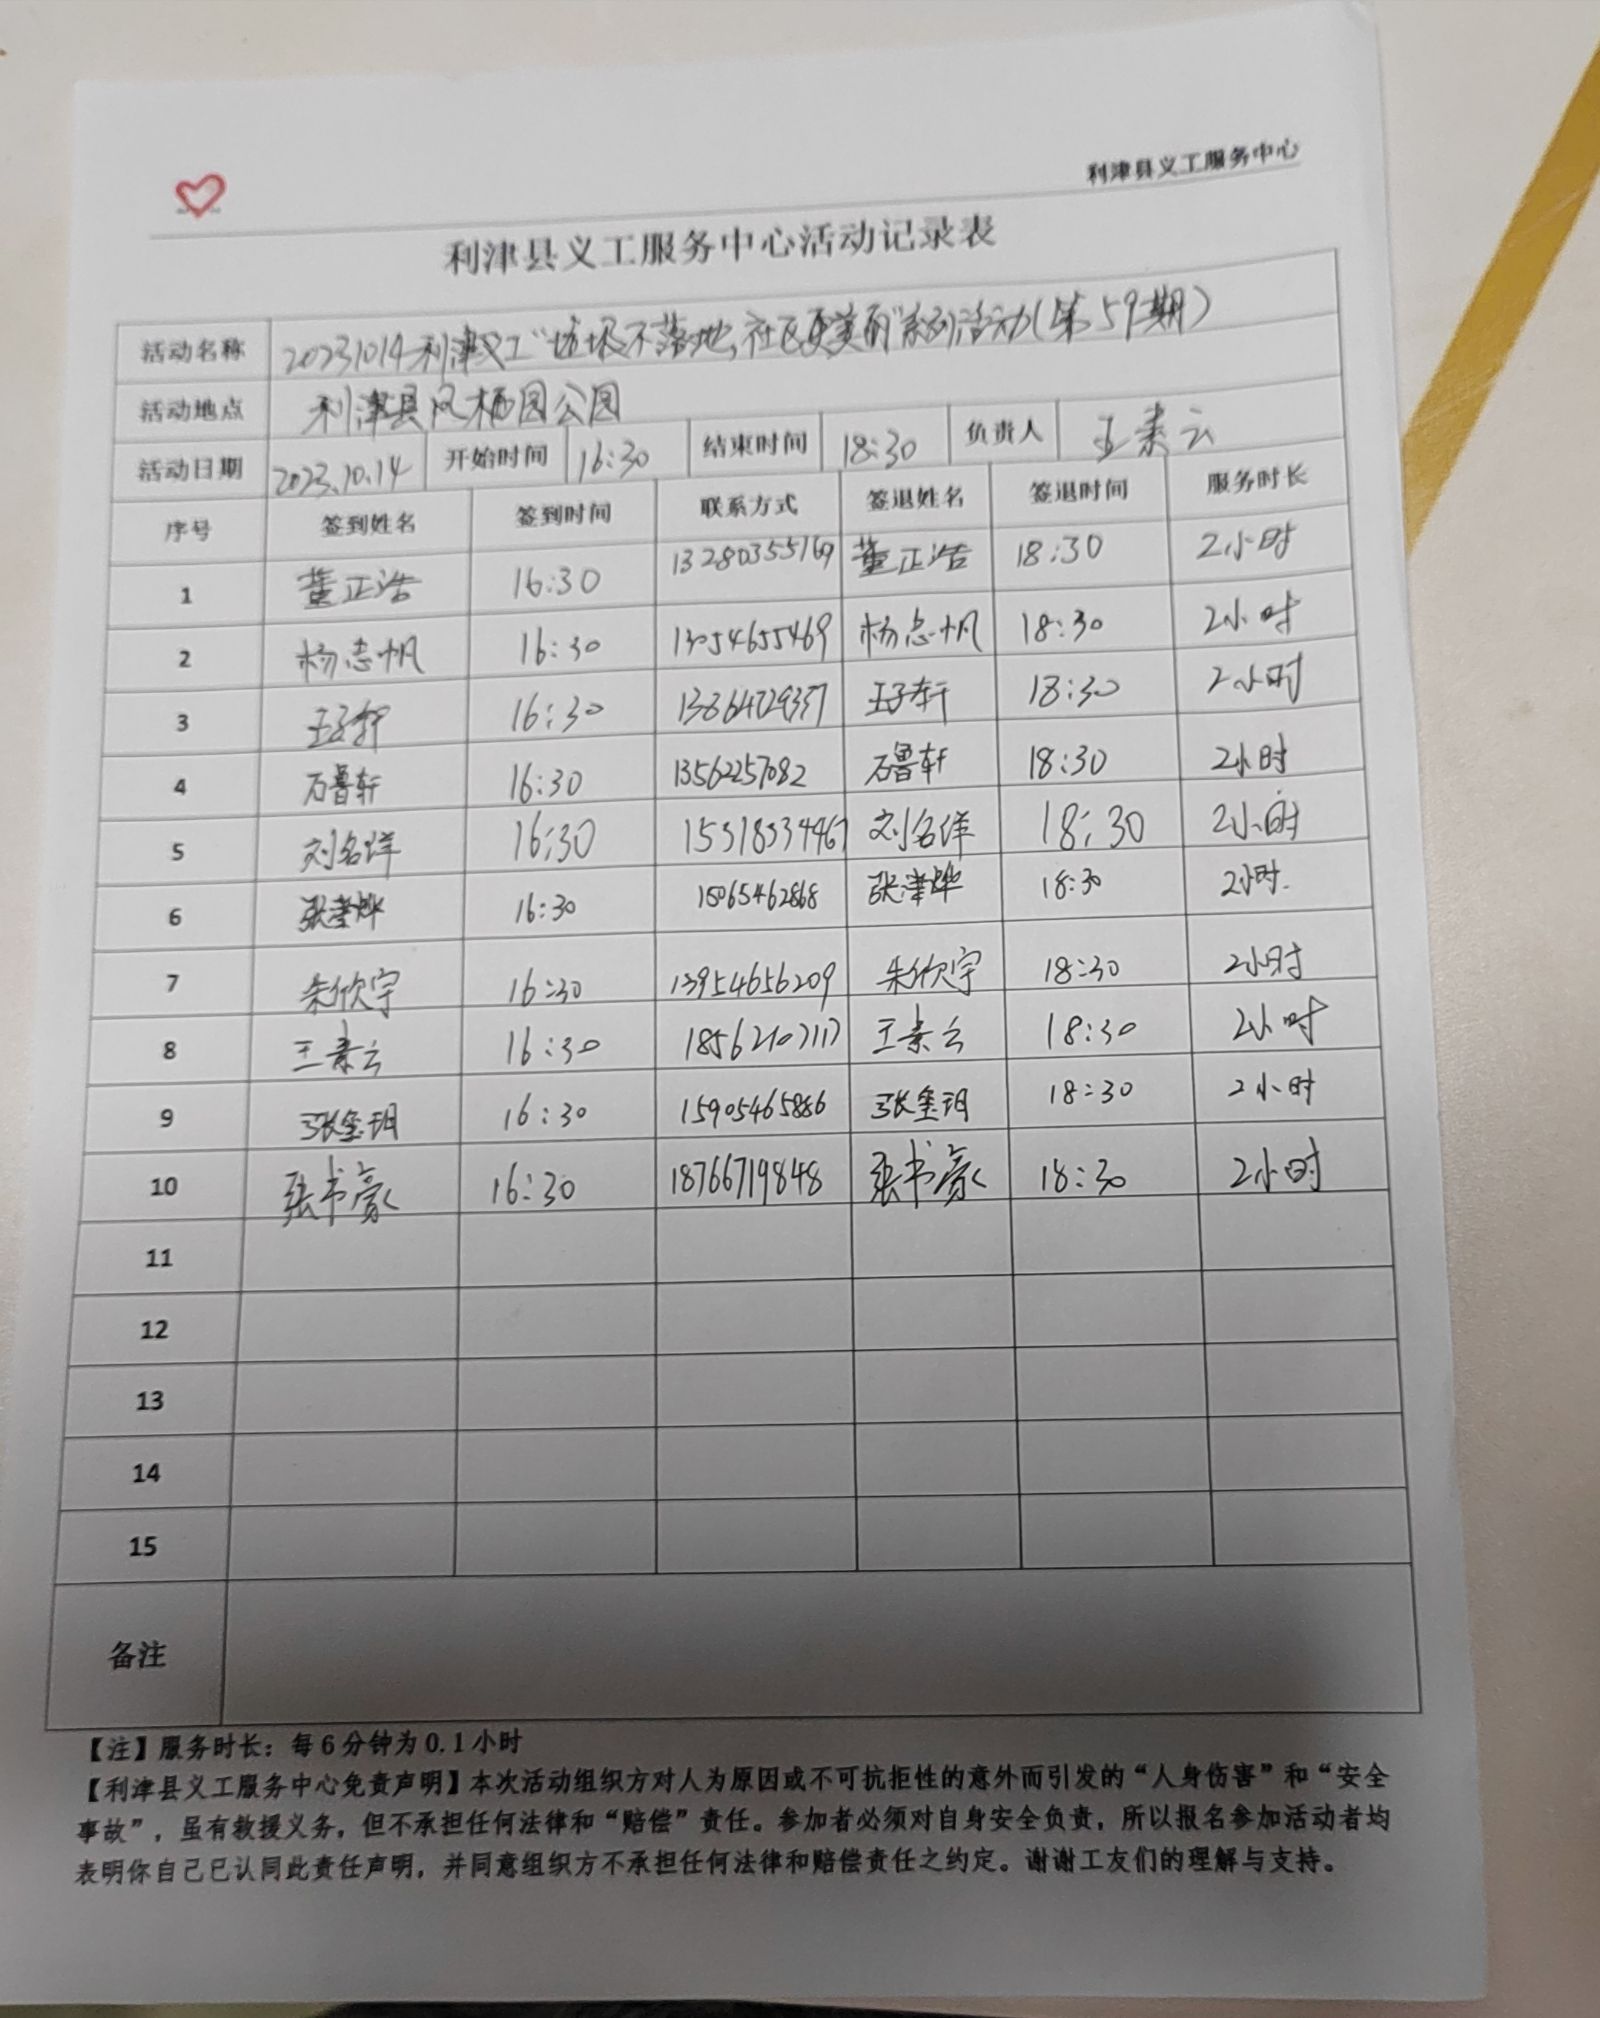 利津县义工服务中心
利津县义工服务中心活动记录表
活动名称 20231014利津义工“垃圾不落地,社区更美丽”系列活动(第59期)
活动地点 利津县凤栖园公园
活动日期 2023.10.14 开始时间 16:30 结束时间 18:30 负责人 王素云
序号 签到姓名 签到时间 联系方式 签退姓名 签退时间 服务时长
1 董正浩 16:30 13280355169 董正浩 18:30 2小时
2 杨志帆 16:30 13054655469 杨志帆 18:30 2小时
3 王子轩 16:30 13864729357 王子轩 18:30 2小时
4 石鲁轩 16:30 13562257082 石鲁轩 18:30 2小时
5 刘名洋 16:30 15318334467 刘名洋 18:30 2小时
6 张津烨 16:30 15065462868 张津烨 18:30 2小时.
7 朱欣宇 16:30 13954656209 朱欣宇 18:30 2小时
8 王素云 16:30 18562107117 王素云 18:30 2小时
9 张玺玥 16:30 15905465886 张玺玥 18:30 2小时
10 张书豪 16:30 18766719848 张书豪 18:30 2小时
11
12
13
14
15
备注
【注】服务时长：每6分钟为0.1小时
【利津县义工服务中心免责声明】本次活动组织方对人为原因或不可抗拒性的意外而引发的“人身伤害”和“安全
事故”，虽有救援义务，但不承担任何法律和“赔偿”责任。参加者必须对自身安全负责，所以报名参加活动者均
表明你自己已认同此责任声明，并同意组织方不承担任何法律和赔偿责任之约定。谢谢工友们的理解与支持。